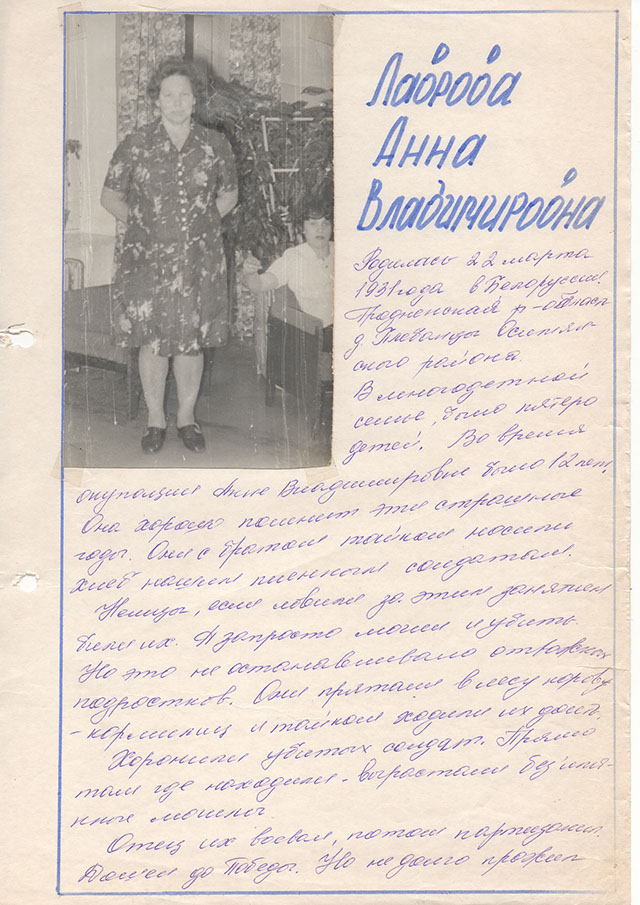 Лаврова
Анна
Владимировна
Родилась 22 марта
1931 года в Белоруссии.
Гродненская р-область
д. Осиповского района.
В многодетной
семье, было пятеро
детей. Во время
окупации Анне Владимировне было 12 лет.
Она хорошо помнит эти страшные
годы. Они с братом тайком носили
хлеб нашим пленным солдатам.
Немцы, если ловили за этим занятием
били их. А запросто могли и убить.
Но это не останавливало отважных
подростков. Они прятали в лесу коров
-кормилиц и тайком ходили их доить.
Хоронили убитых солдат. Прямо
там где находили - вырастали безимя-
нные могилы.
Отец их воевал, потом партизанил.
Дошёл до Победы. Но не долго прожил